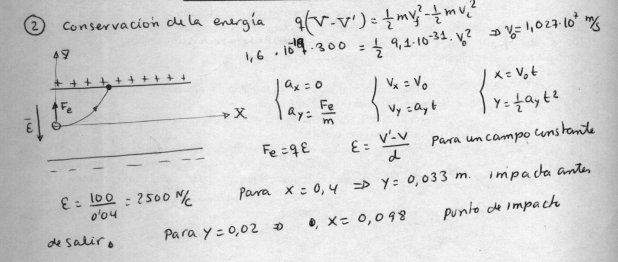 ② Conservación de la energía q(V-V') = 1/2 m v_f² - 1/2 m v_i²
1,6 · 10⁻¹⁹ · 300 = 1/2 9,1·10⁻³¹ · V₀² ⇒ V₀ = 1,027·10⁷ m/s
y
+ + + + + + + + + +
a_x = 0
a_y = Fe/m
V_x = V₀
V_y = a_y t
x = V₀ t
y = 1/2 a_y t²
Fe
E
x
- - - - - -
Fe = qE E = (V'-V)/d Para un campo constante
E = 100/0'04 = 2500 N/C Para x = 0,4 ⇒ y = 0,033 m. impacta antes
de salir. Para y = 0,02 ⇒ x = 0,098 Punto de impacto